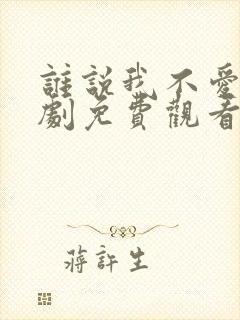 誰說我不愛
劇免費觀看
蔣許生